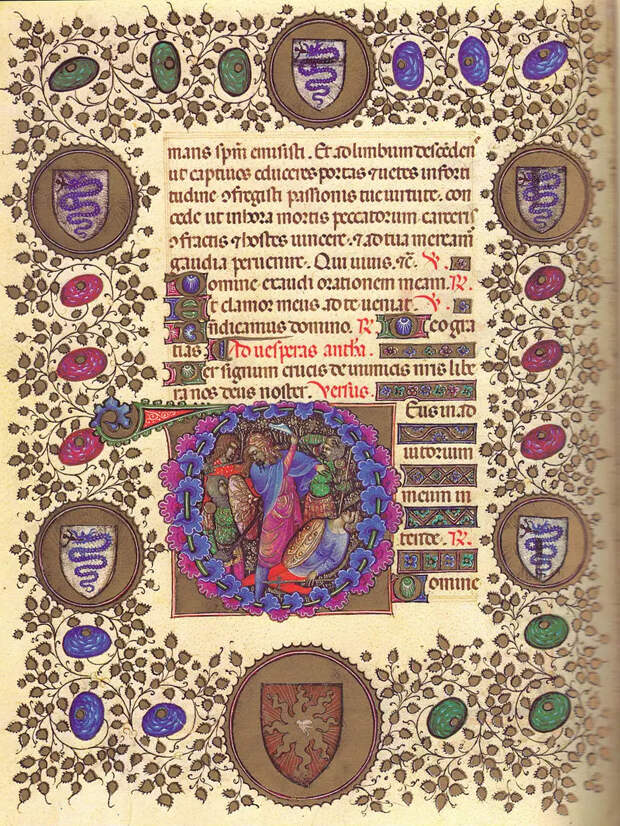 manis spm emisisti. Et ad limbum descēdēn
ut captiuos educeres portas ⁊ uetes in forti
tudine ꝯfregisti passionis tue uirtute. con
cede ut in hora mortis peccatorum carceris
ꝯfractis ⁊ hostes uincere. ⁊ ad tua meream
gaudia peruenire. Qui uiuis. ⁊c̄. V.
Domine exaudi orationem meam. R.
Et clamor meus ad te ueniat. V.
Bn̄dicamus domino. R. Deo gra
tias. Ad uesperas antha.
Per signum crucis de inimicis nr̄is libe
ra nos deus noster. Versus.
Deus in ad
iutorium
meum in
tende. R.
Domine